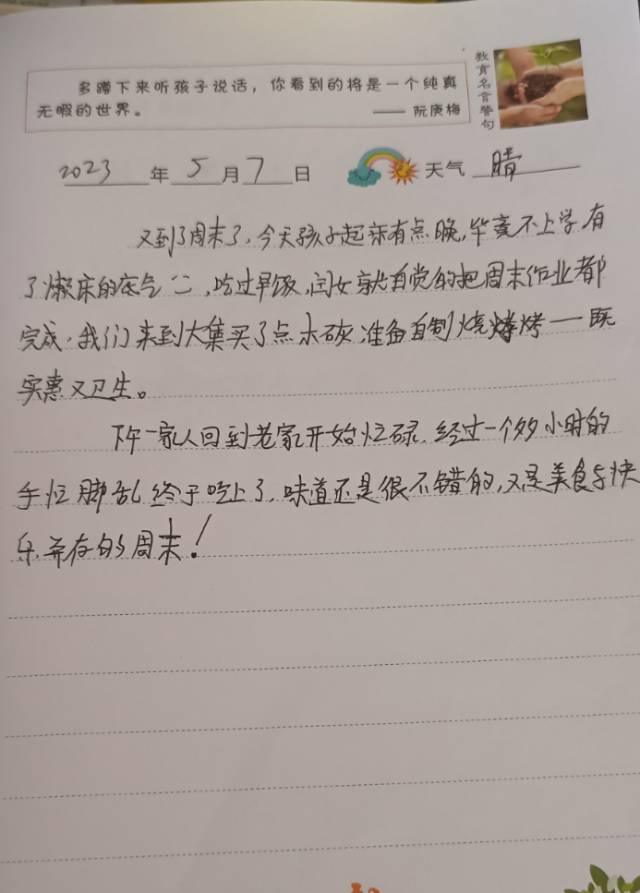 教育名言警句
多蹲下来听孩子说话，你看到的将是一个纯真
无暇的世界。
—— 阮庚梅
2023年5月7日 天气 晴
又到了周末了，今天孩子起床有点晚，毕竟不上学有
了懒床的底气，吃过早饭，闺女就自觉的把周末作业都
完成，我们来到大集买了点木碳准备自制烧烤一既
实惠又卫生。
下午一家人回到老家开始忙碌，经过一个多小时的
手忙脚乱终于吃上了，味道还是很不错的，又是美食与快
乐并存的周末！